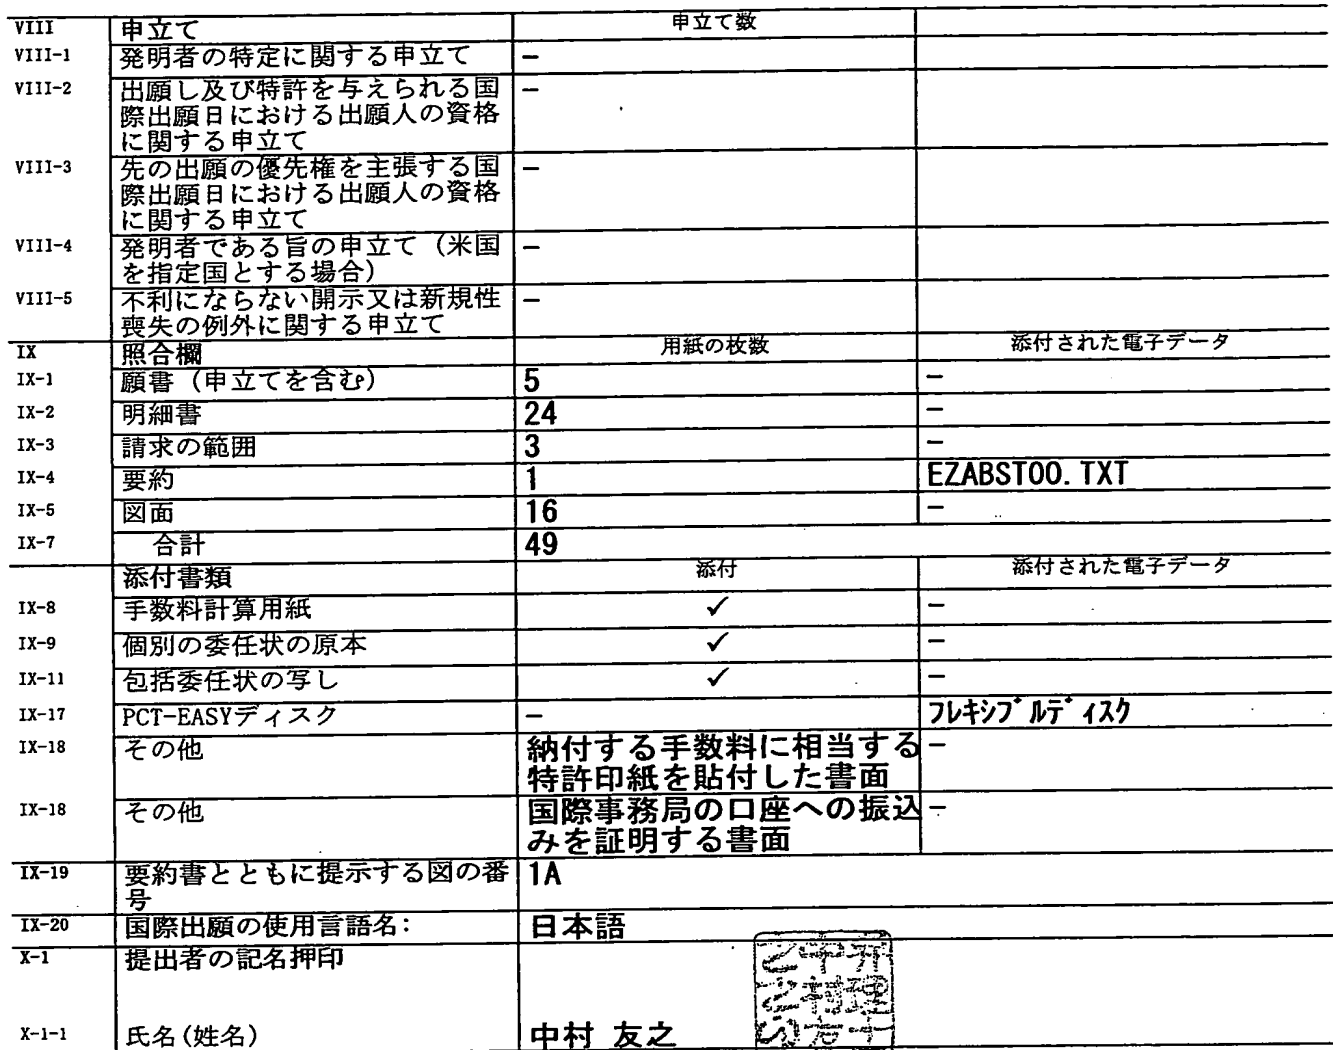 VIII 申立て 申立て数
VIII-1 発明者の特定に関する申立て -
VIII-2 出願し及び特許を与えられる国 -
際出願日における出願人の資格
に関する申立て
VIII-3 先の出願の優先権を主張する国 -
際出願日における出願人の資格
に関する申立て
VIII-4 発明者である旨の申立て(米国 -
を指定国とする場合)
VIII-5 不利にならない開示又は新規性 -
喪失の例外に関する申立て
IX 照合欄 用紙の枚数 添付された電子データ
IX-1 願書(申立てを含む) 5 -
IX-2 明細書 24 -
IX-3 請求の範囲 3 -
IX-4 要約 1 EZABST00.TXT
IX-5 図面 16 -
IX-7 合計 49
添付書類 添付 添付された電子データ
IX-8 手数料計算用紙 ✓ -
IX-9 個別の委任状の原本 ✓ -
IX-11 包括委任状の写し ✓ -
IX-17 PCT-EASYディスク - フレキシブルディスク
IX-18 その他 納付する手数料に相当する -
特許印紙を貼付した書面
IX-18 その他 国際事務局の口座への振込 -
みを証明する書面
IX-19 要約書とともに提示する図の番 1A
号
IX-20 国際出願の使用言語名: 日本語
X-1 提出者の記名押印
X-1-1 氏名(姓名) 中村 友之